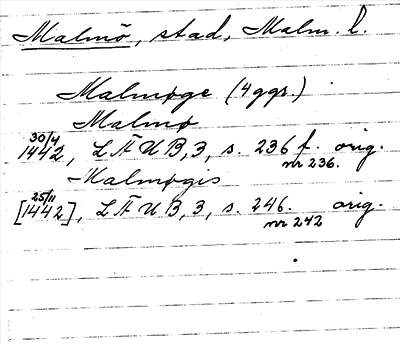 Malmö, stad, Malm. l.
Malmøge (4 ggr.)
Malmø
30/4 1442, LÄUB, 3, s. 236 f. orig.
nr 236.
Malmøgis
[25/11 1442], LÄUB, 3, s. 246. orig.
nr 242